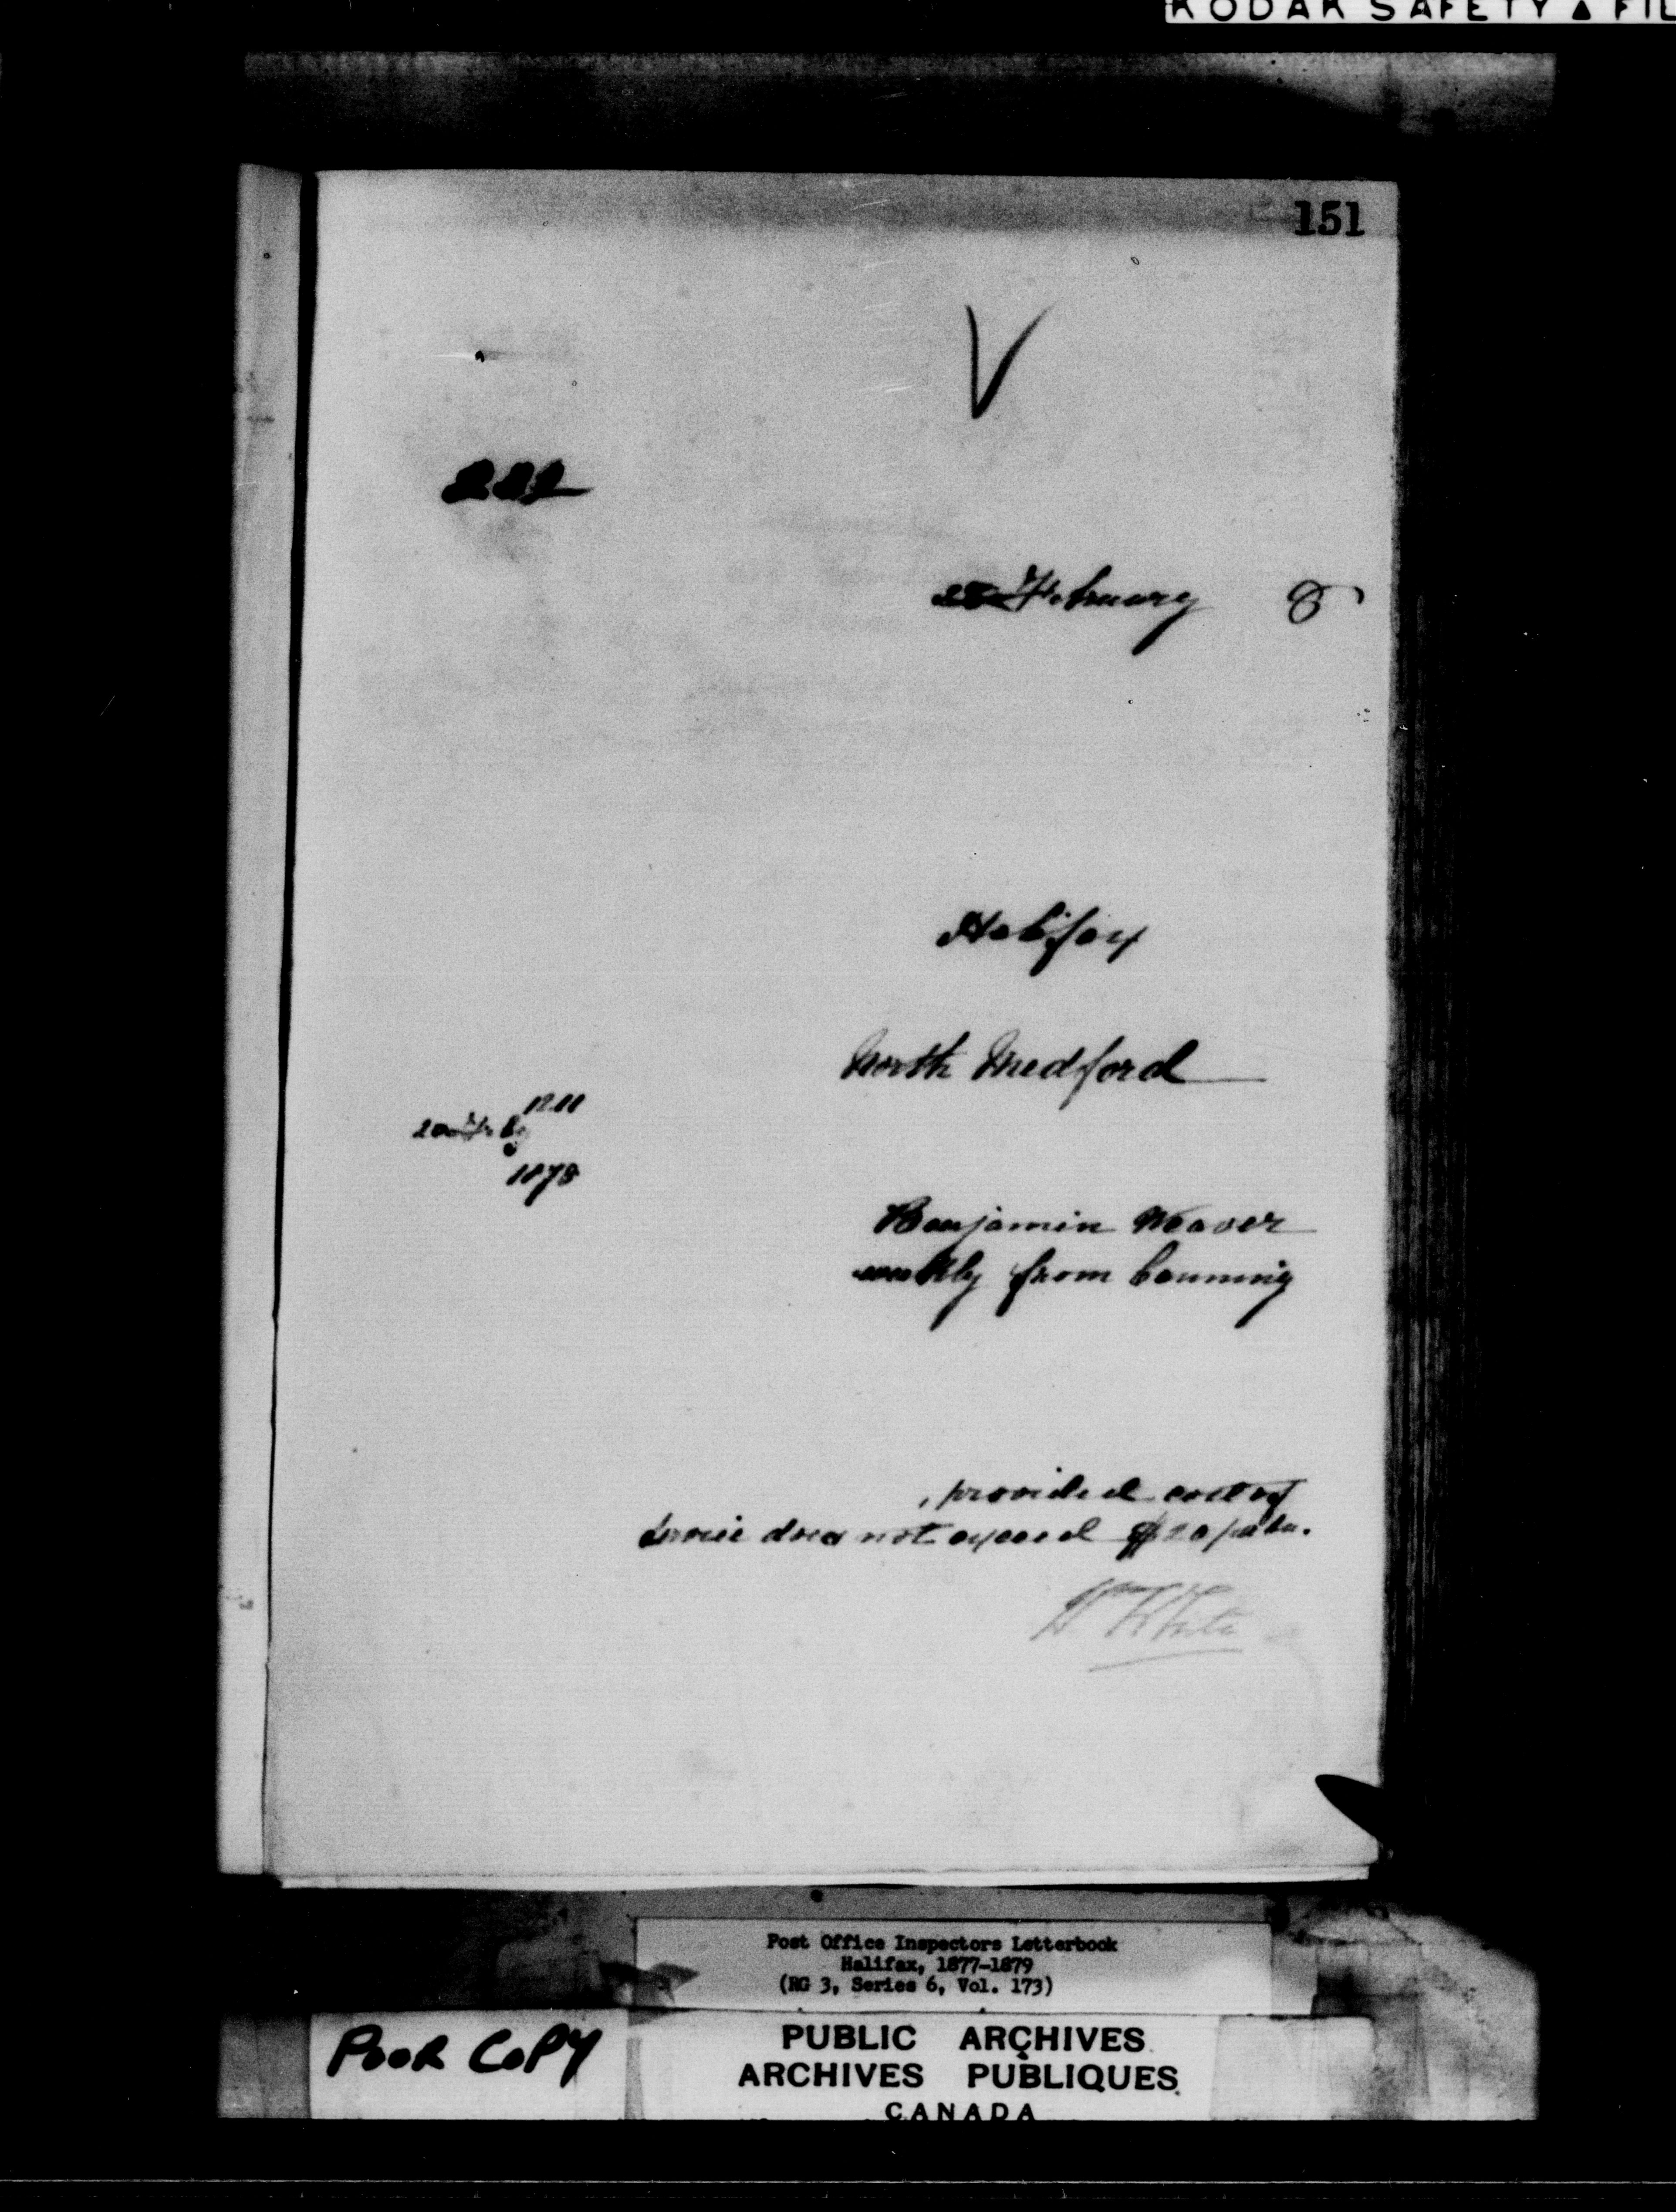 KODAK SAFETY ▲ FIL
151
V
222
February 8
Halifax
North Medford
1878
Benjamin Weaver
weekly from Canning
, provided cost of
service does not exceed $20
W White
Post Office Inspectors Letterbook
Halifax, 1877-1879
(RG 3, Series 6, Vol. 173)
POOR COPY
PUBLIC ARCHIVES
ARCHIVES PUBLIQUES
CANADA